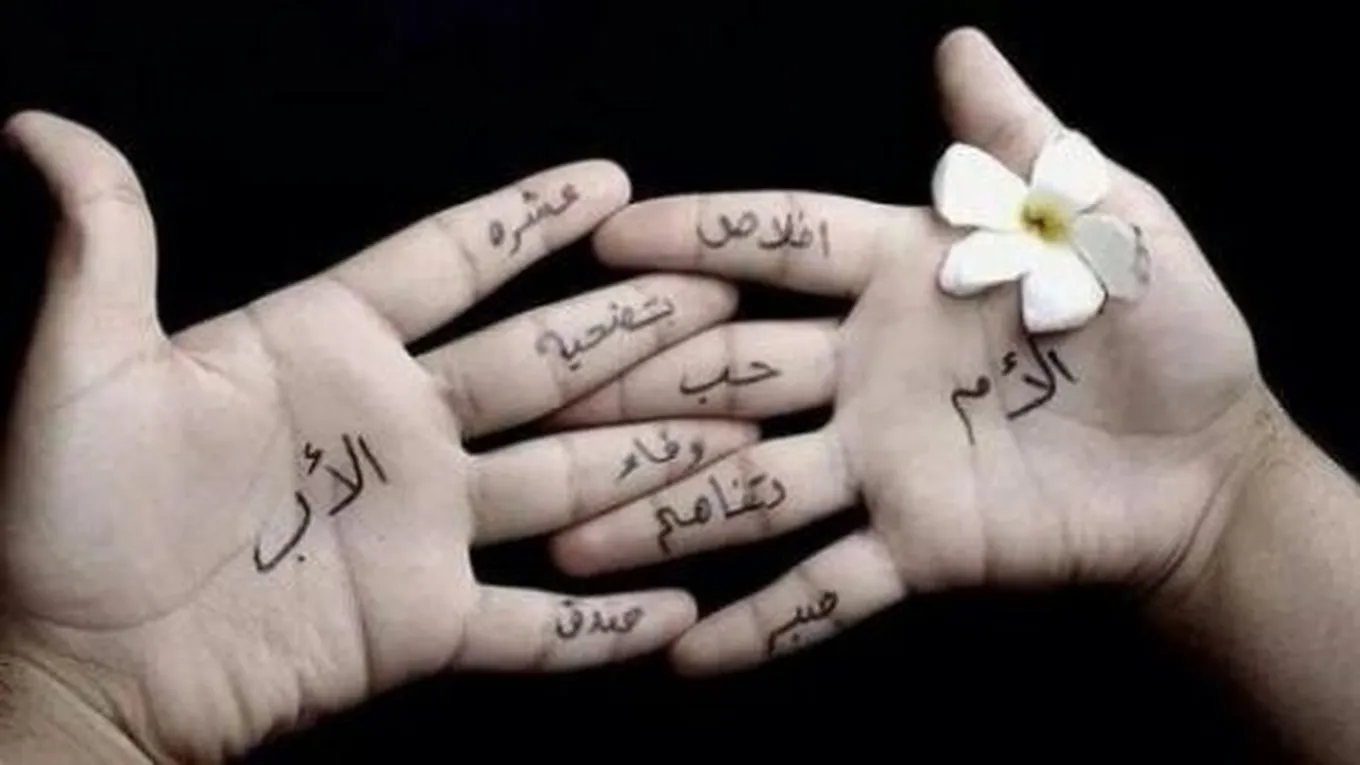 عشره
اخلاص
بتضحية
حب
وفاء
بتفاهم
صدق
صبر
الأم
الأب